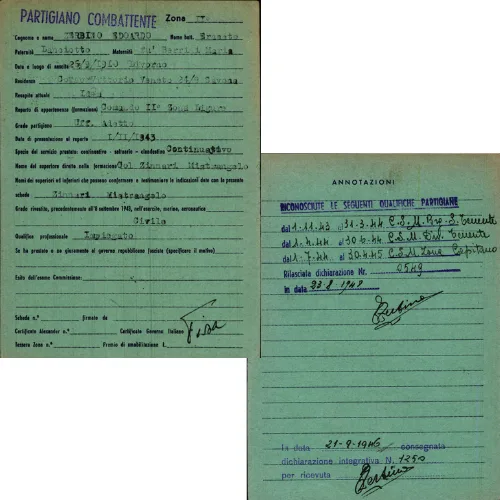 PARTIGIANO COMBATTENTE Zona II°
Cognome e nome ZERBINO EDOARDO Nome batt. Ernesto
Paternità Lanciotto Maternità fu Berrini Maria
Data e luogo di nascita 25/2/1910 Livorno
Residenza Corso Vittorio Veneto 21/9 Savona
Recapito attuale Idem
Reparto di appartenenza (formazione) Comando II° Zona Ligure
Grado partigiano Uff. Addetto
Data di presentazione al reparto 1/11/1943
Specie del servizio prestato: continuativo - saltuario - clandestino Continuativo
Nome del superiore diretto nella formazione Col Zinnari Mistrangelo
Nomi dei superiori ed inferiori che possono confermare o testimoniare le indicazioni date con la presente
scheda Zinnari Mistrangelo
Grado rivestito, precedentemente all'8 settembre 1943, nell'esercito, marina, aeronautica
Civile
Qualifica professionale Impiegato
Se ha prestato o no giuramento al governo repubblicano fascista (specificare il motivo)
Esito dell'esame Commissione:
Scheda n.° firmata da
Certificato Alexander n.° Certificato Governo Italiano
Tessera Zona n.° Premio di smobilitazione L.
ANNOTAZIONI
RICONOSCIUTE LE SEGUENTI QUALIFICHE PARTIGIANE
dal 1-11-43 al 31-3-44 C.S.M. Bro. S. Tenente
dal 1-4-44 al 30-6-44 C.S.M. Div. Tenente
dal 1-7-44 al 30-4-45 C.S.M. Zona Capitano
Rilasciata dichiarazione Nr. 0549
in data 23-8-1947
Zerbino
In data 21-9-1946 consegnata
dichiarazione integrativa N. 1250
per ricevuta Zerbino